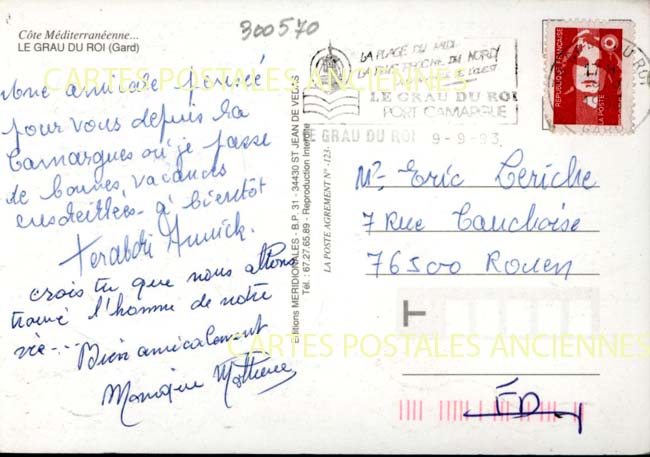 Côte Méditerranéenne...
LE GRAU DU ROI (Gard)
300570
Une amicale pensée
pour vous depuis la
Camargues où je passe
de bonnes vacances
ensoleillées à bientôt
Annick.
crois tu que nous allons
trouvé l'homme de notre
vie....
Bien amicalement
Monique
Editions MERIDIONALES - B.P. 31 - 34430 ST JEAN DE VEDAS
Tél. : 67.27.65.89 - Reproduction Interdite
LA POSTE AGREMENT N° -123-
LA PLAGE DU MIDI
LA PLUS PROCHE DU NORD
DE L'OUEST
LE GRAU DU ROI
PORT CAMARGUE
LE GRAU DU ROI 9-9-93
REPUBLIQUE FRANÇAISE
LA POSTE
DU ROI
GARD
Mr Eric Leriche
7 Rue Cauchoise
76500 Rouen
T
ED
CARTES POSTALES ANCIENNES
CARTES POSTALES ANCIENNES